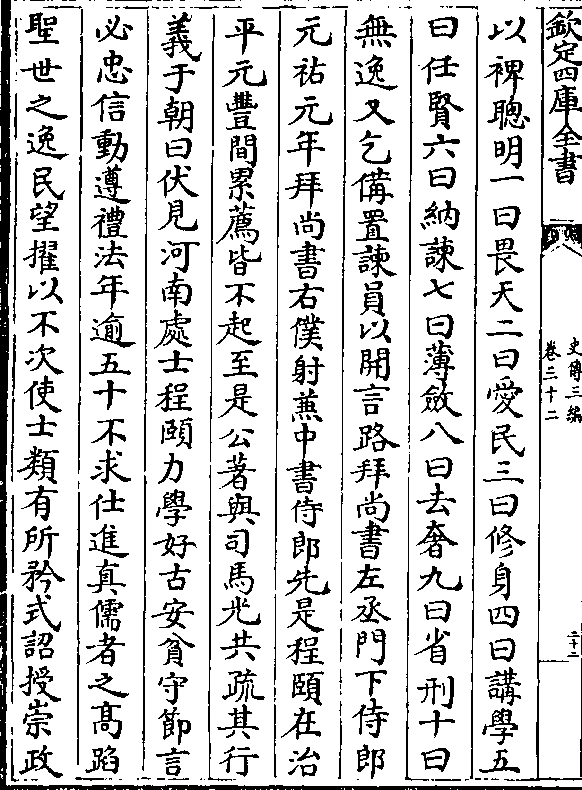 欽定四庫全書
史傳三編
卷三十二
二十一
以裨聰明一曰畏天二曰愛民三曰修身四曰講學五
曰任賢六曰納諫七曰薄斂八曰去奢九曰省刑十曰
無逸又乞備置諫員以開言路拜尚書左丞門下侍郎
元祐元年拜尚書右僕射蒹中書侍郎先是程頤在治
平元豐間累薦皆不起至是公著與司馬光共疏其行
義于朝曰伏見河南處士程頤力學好古安貧守節言
必忠信動遵禮法年逾五十不求仕進真儒者之髙蹈
聖世之逸民望擢以不次使士類有所矜式詔授崇政